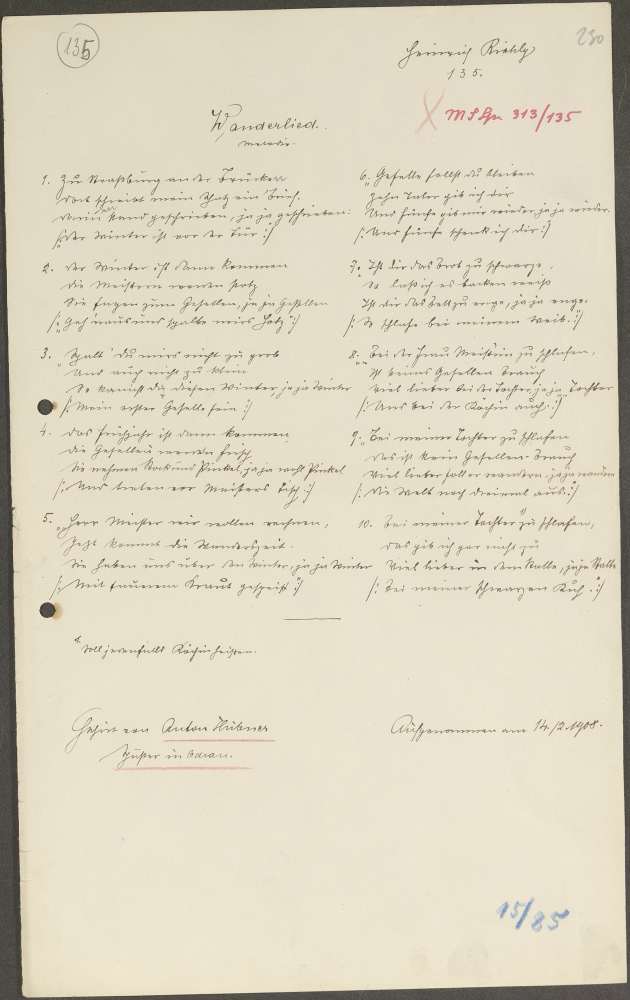 135
230
Heinrich Rietsch
135.
MS Gu 313/135
Wanderlied.
Melodie.
1. Zu Straßburg an der Brücken
Dort schreibt mein Schatz ein Brief.
Darin stand geschrieben, ja ja geschrieben:
/: Der Winter ist vor der Tür :/
2. Der Winter ist dann kommen
Die Meistern werden stolz
Sie sagen zum Gesellen, ja ja Gesellen
/: "Geh 'naus und spalte mirs Holz" :/
3. "Spalt' du mirs nicht zu grob
Und auch nicht zu klein
So kannst du diesen Winter, ja ja Winter
/: Mein erster Geselle sein :/
4. Das Frühjahr ist dann kommen
Die Gesellen werden frisch
Sie nehmen Stock und Pinkel, ja ja Pinkel
/: Und treten vor Meisters Tisch :/
5. "Herr Meister wir wollen rechnen,
Jetzt kommt die Wanderzeit.
Sie haben uns über den Winter, ja ja Winter
/: Mit sauerem Kraut gespeist" :/
6. "Geselle sollst du bleiben
Zehn Taler gib ich dir
Und fünfe gib mir wieder, ja ja wieder
/: Und fünfe schenk ich dir :/
7. Ist dir das Brot zu schwarze,
So laß ich es backen weiß
Ist dir das Bett zu enge, ja ja enge.
/: So schlafe bei meinem Weib." :/
8. "Bei der Frau Meistrin zu schlafen,
Ist keins Gesellen Brauch
Viel lieber bei der Tochter, ja ja Tochter
/: Und bei der Köchin auch." :/
9. "Bei meiner Tochter zu schlafen
Das ist kein Gesellen Brauch
Viel lieber soll er wandern, ja ja wandern
/: Die Welt noch dreimal aus." :/
10. Bei meiner Tochter zu schlafen,
Das gib ich gar nicht zu
Viel lieber in dem Stalle, ja ja Stalle
/: Bei meiner schwarzen Kuh." :/
Soll jedenfalls Köchin heißen.
Gehört von Anton Hübner
Aufgenommen am 14./2. 1908.
15/85